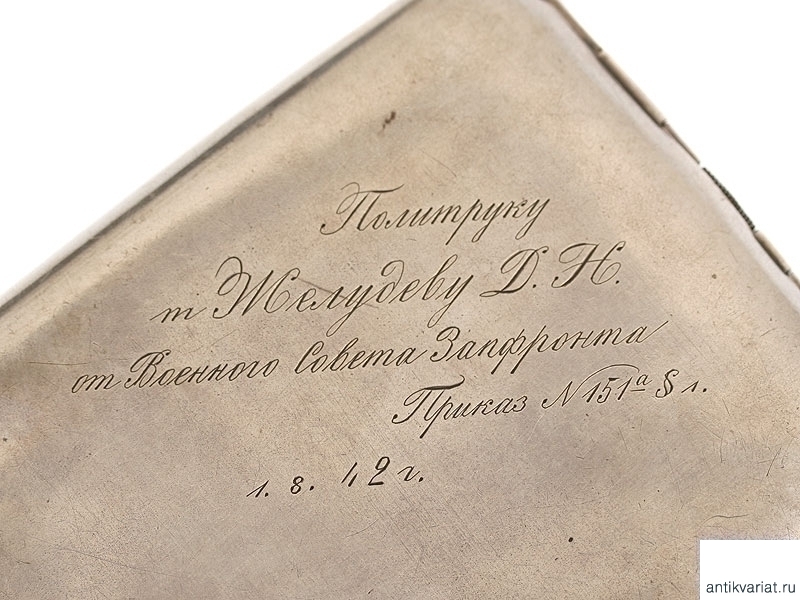 Политруку
т Желудеву Д. Н.
от Военного Совета Запфронта
Приказ N 151а § 1.
1. 8. 42 г.
antikvariat.ru